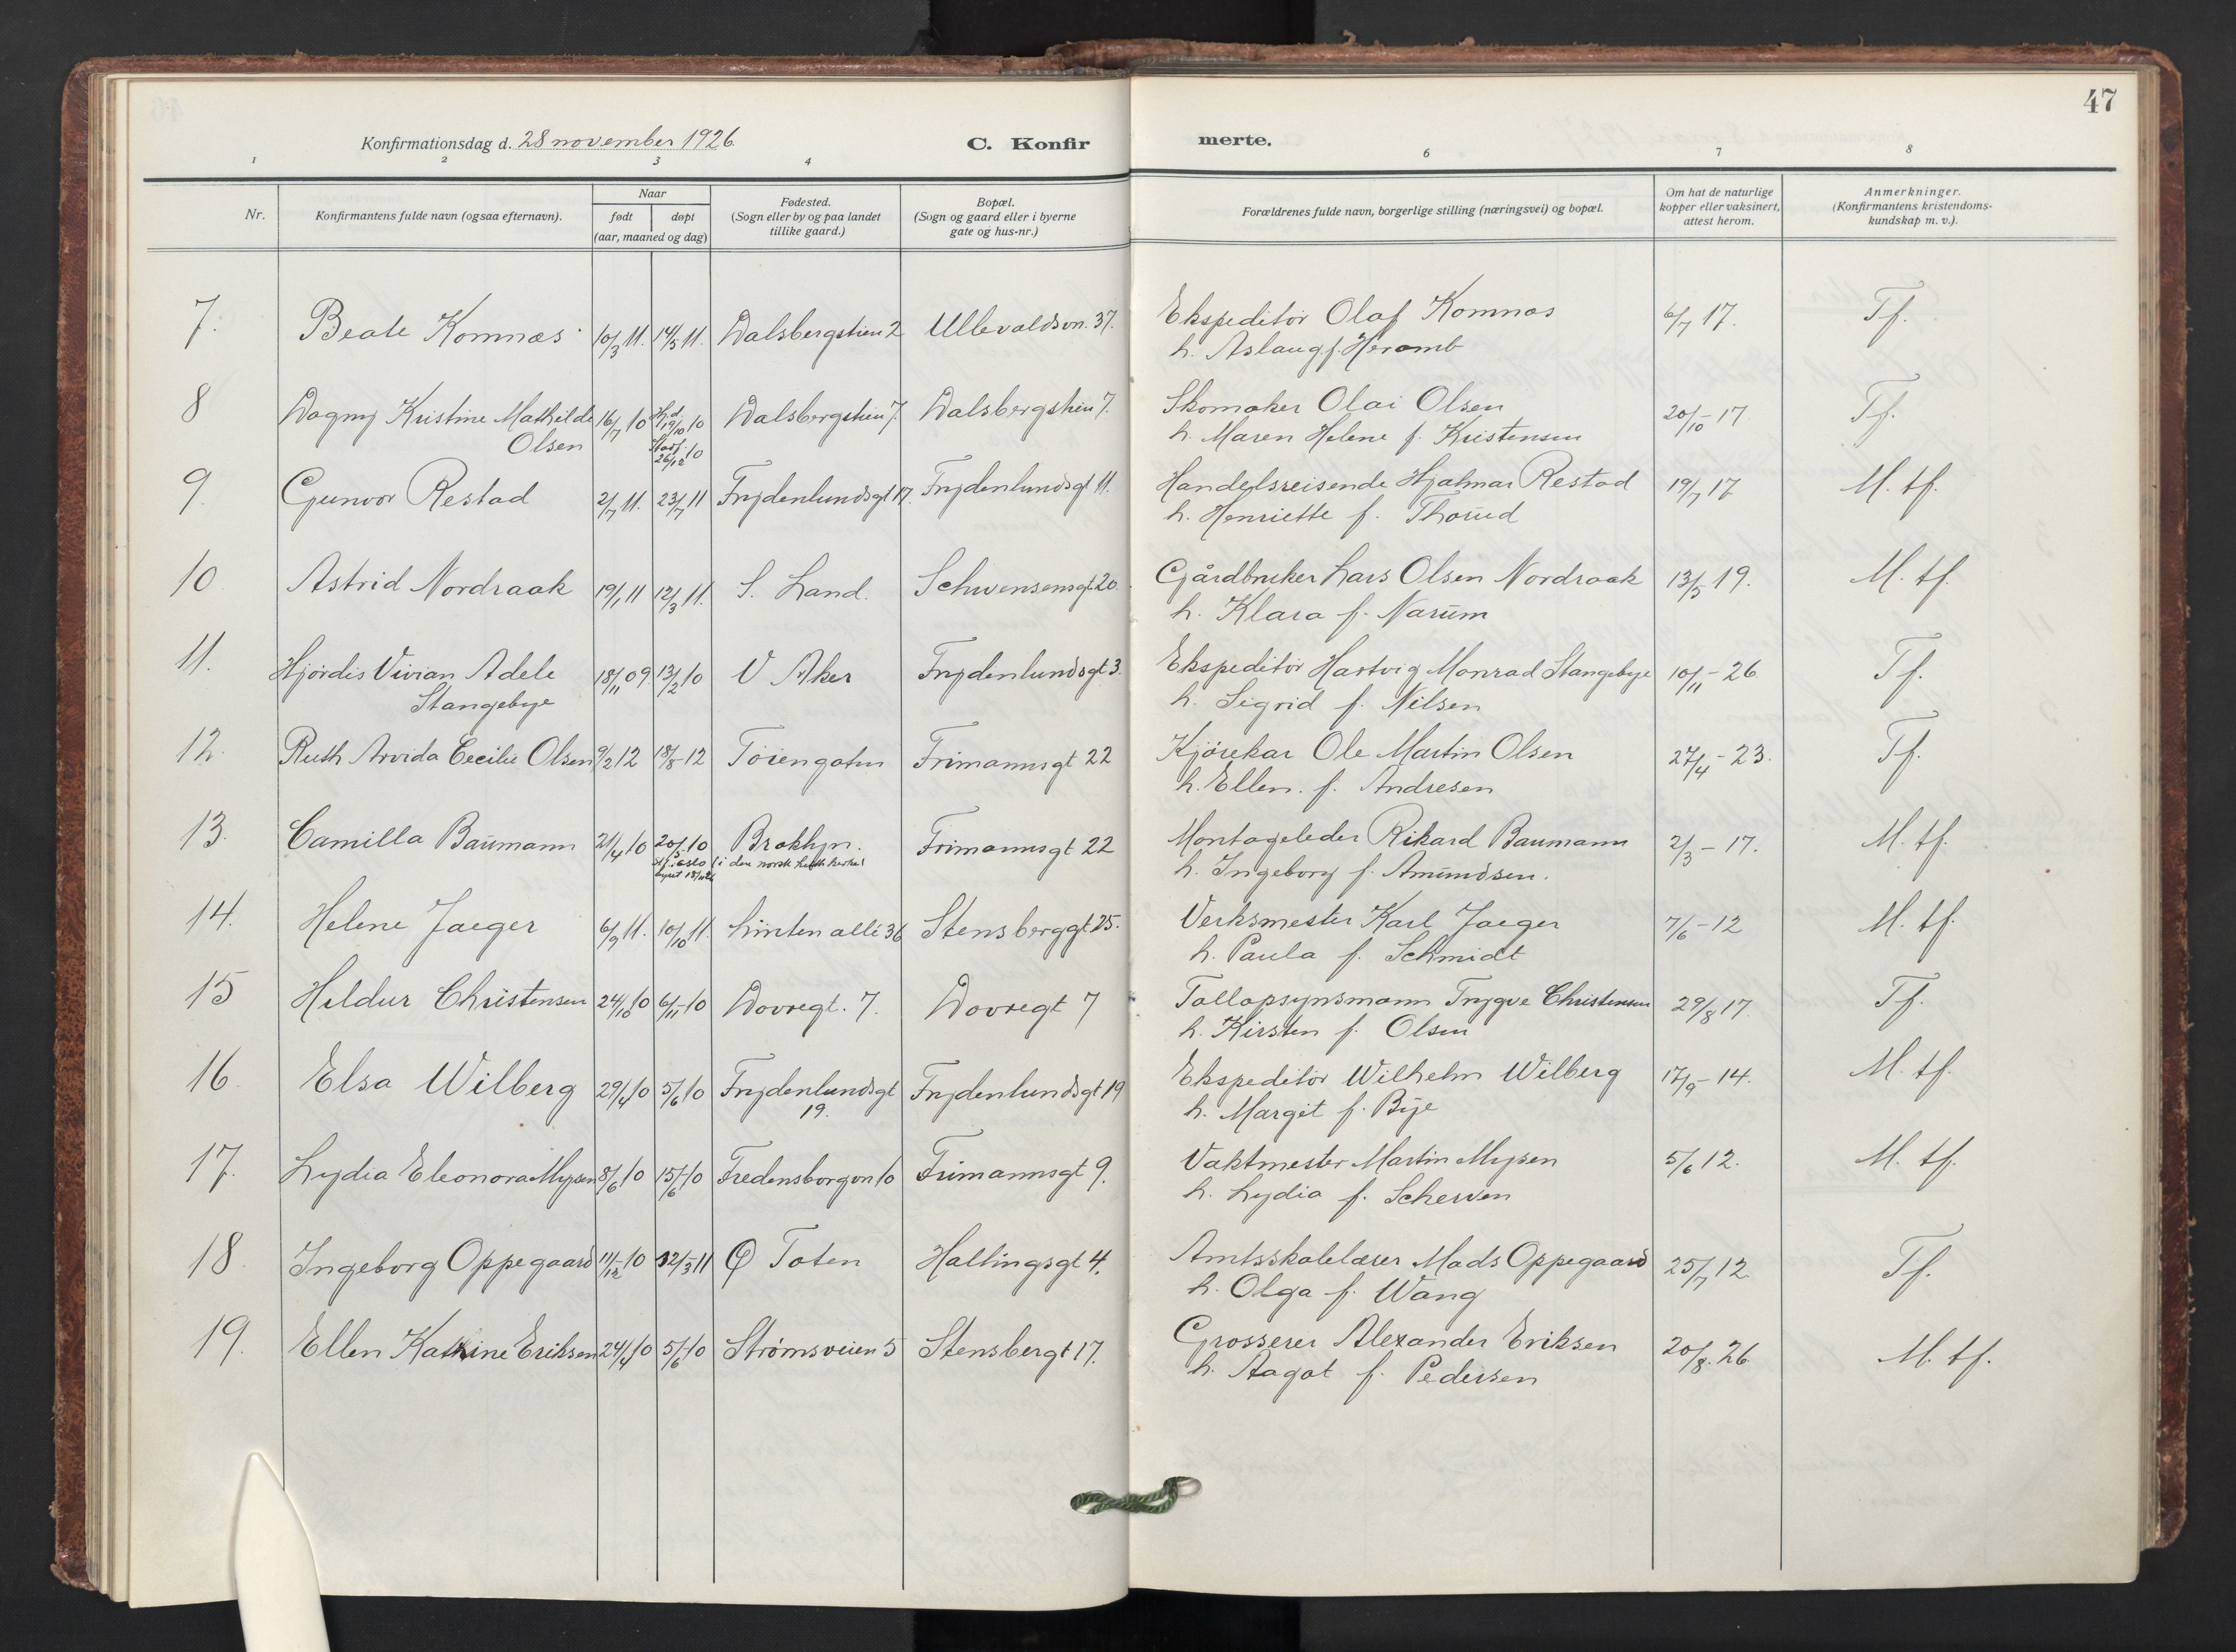 47
Konfirmationsdag d. 28 november 1926
C. Konfir
merte.
1 2 3 4
6 7 8
Nr.
Konfirmantens fulde navn (ogsaa efternavn).
Naar
født døpt
(aar, maaned og dag)
Fødested.
(Sogn eller by og paa landet
tillike gaard.)
Bopæl.
(Sogn og gaard eller i byerne
gate og hus-nr.)
Forældrenes fulde navn, borgerlige stilling (næringsvei) og bopæl.
Om hat de naturlige
kopper eller vaksinert,
attest herom.
Anmerkninger.
(Konfirmantens kristendoms-
kundskap m. v.).
7. Beate Komnæs 10/3 11. 14/5 11. Dalsbergstien 2 Ullevaldsvn. 37. Ekspeditör Olaf Komnæs 6/7 17. Tf.
h. Aslaug f. Heramb
8 Dagny Kristine Mathilde 16/7 10 Hj.d. 19/10 10 Dalsbergstien 7. Dalsbergstien 7. Skomaker Olai Olsen 20/10 - 17 Tf.
Olsen Stadf. 26/12 10 h. Maren Helene f. Kristensen
9. Gunvor Restad 2/7 11. 23/7 11 Frydenlundsgt 17. Frydenlundsgt 11. Handelsreisende Hjalmar Restad 19/7 17 M. tf.
h. Henriette f. Thorud
10 Astrid Nordraak 19/1 11 12/3 11. S. Land. Schwensensgt. 20. Gårdbruker Lars Olsen Nordraak 13/5 19. M. tf.
h. Klara f. Narum
11. Hjördis Vivian Adele 18/11 09 13/2 10 V Aker Frydenlundsgt 3. Ekspeditör Hartvig Monrad Stangebye 10/11 - 26. Tf.
Stangebye h. Sigrid f. Nilsen
12. Ruth Arvida Cecilie Olsen 9/2 12 18/8 - 12 Töiengaten Frimannsgt 22 Kjörekar Ole Martin Olsen 27/4 - 23. Tf.
h. Ellen. f. Andresen
13. Camilla Baumann 21/4 10 20/5 10 Broklyn. Frimannsgt 22 Montageleder Rikard Baumann 2/3 - 17. M. tf.
(i den norsk luth kirke) h. Ingeborg f. Amundsen.
14. Helene Jaeger 6/9 11. 10/10 11. Linten allé 36 Stensberggt 25. Verksmester Karl Jaeger 7/6 - 12 M. tf.
h. Paula f. Schmidt
15 Hildur Christensen 24/10 10 6/11 - 10 Dovregt. 7. Dovregt 7 Tollopsynsmann Trygve Christensen 29/8 17. Tf.
h. Kirsten f. Olsen
16. Elsa Wilberg 29/4 10 5/6 10 Frydenlundsgt Frydenlundsgt 19 Ekspeditör Wilhelm Wilberg 17/9 - 14. M. tf.
19. h. Margit f. Bye
17. Lydia Eleonora Mysen 8/6 10 15/6 - 10 Fredensborgvn 10 Frimannsgt 9. Vaktmester Martin Mysen 5/6 12. M. tf.
h. Lydia f. Scherven
18. Ingeborg Oppegaard 11/12 - 10 12/3 11 Ø Toten Hallingsgt 4. Amtsskolelærer Mads Oppegaard 25/7 12. Tf.
h. Olga f. Wang
19. Ellen Katrine Eriksen 24/4 10 5/6 10 Strømsveien 5 Stensbergt 17. Grosserer Alexander Eriksen 20/8. 26. M. tf.
h. Aagot f. Pedersen